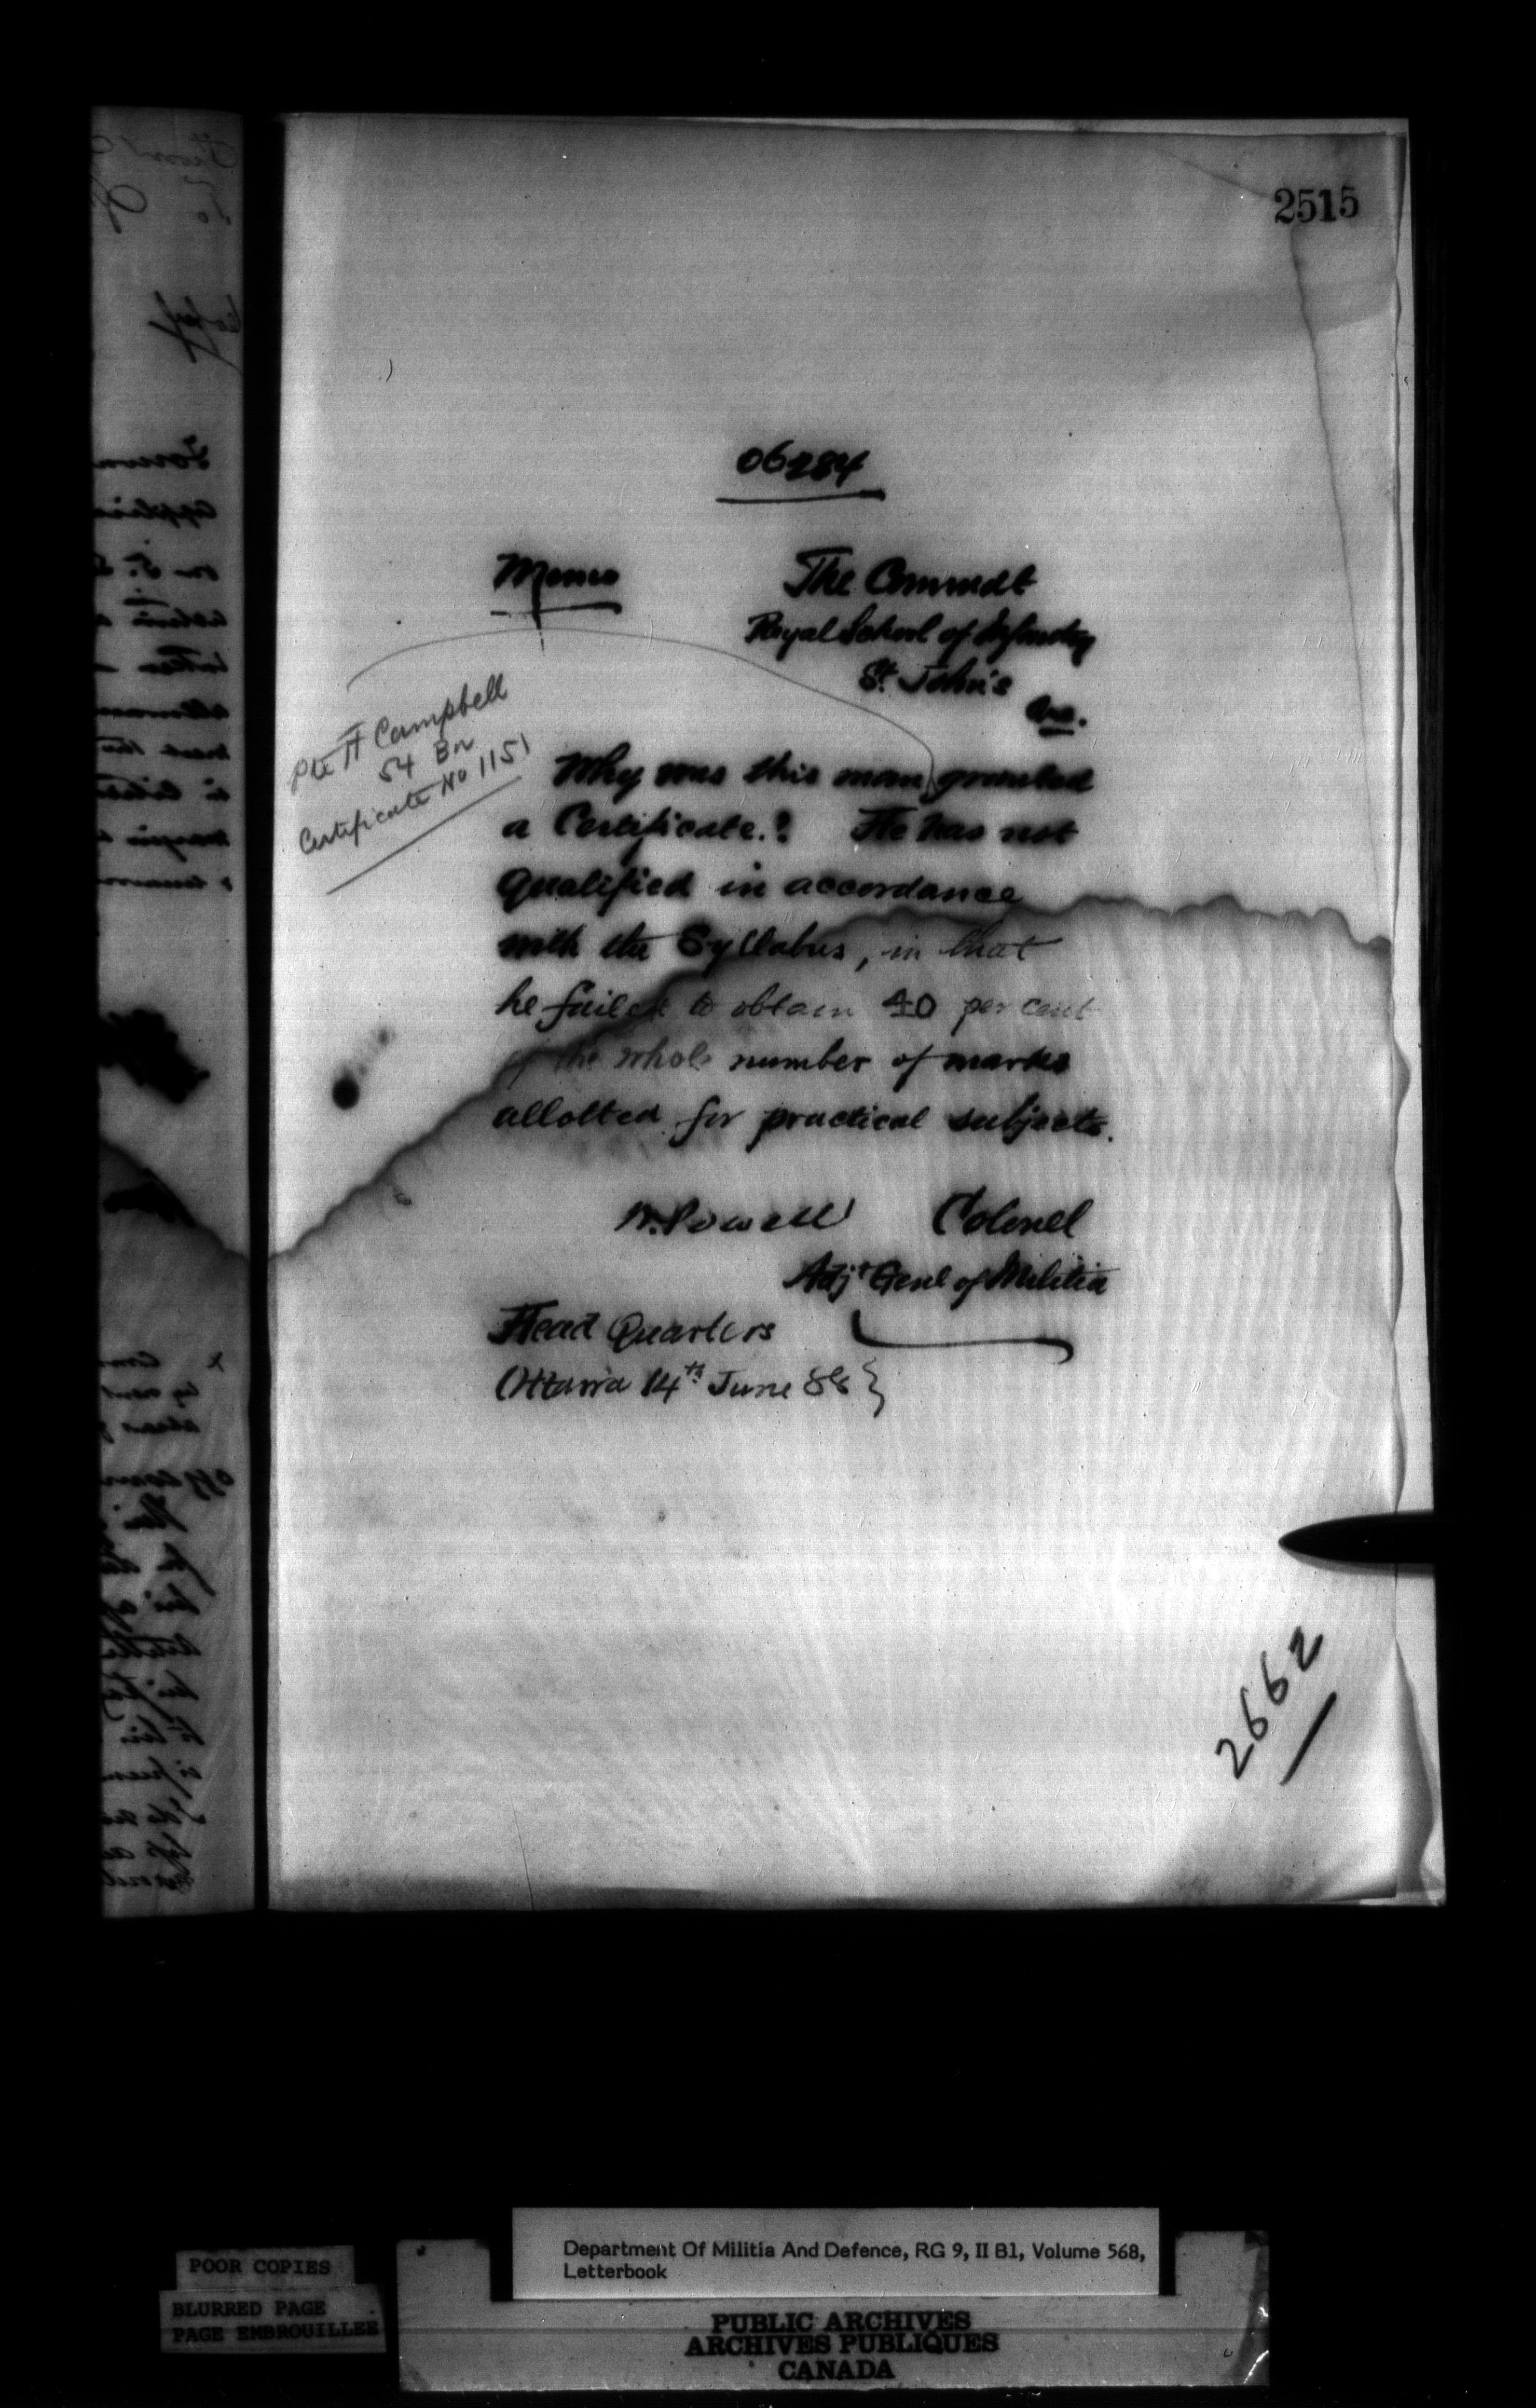 2515
06284
Memo
The Commdt
Royal School of Infantry
St. John's
Pte H Campbell
54 Bn
Certificate No 1151
Why was this man granted
a Certificate.? He has not
qualified in accordance
with the Syllabus, in that
he failed to obtain 40 per cent
of the whole number of marks
allotted for practical subjects.
W. Powell Colonel
Adjt Genl of Militia
Head Quarters
Ottawa 14th June 88 }
2662
POOR COPIES
BLURRED PAGE
PAGE EMBROUILLEE
Department Of Militia And Defence, RG 9, II B1, Volume 568,
Letterbook
PUBLIC ARCHIVES
ARCHIVES PUBLIQUES
CANADA